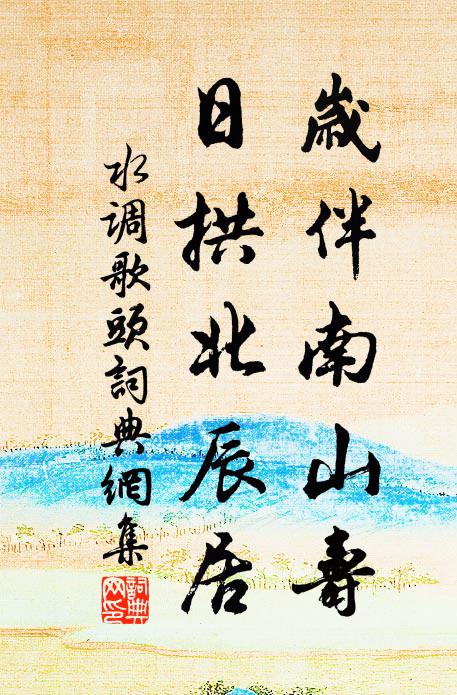 歲伴南山壽
日拱北辰居
水调歌頭詞典網集
詞典